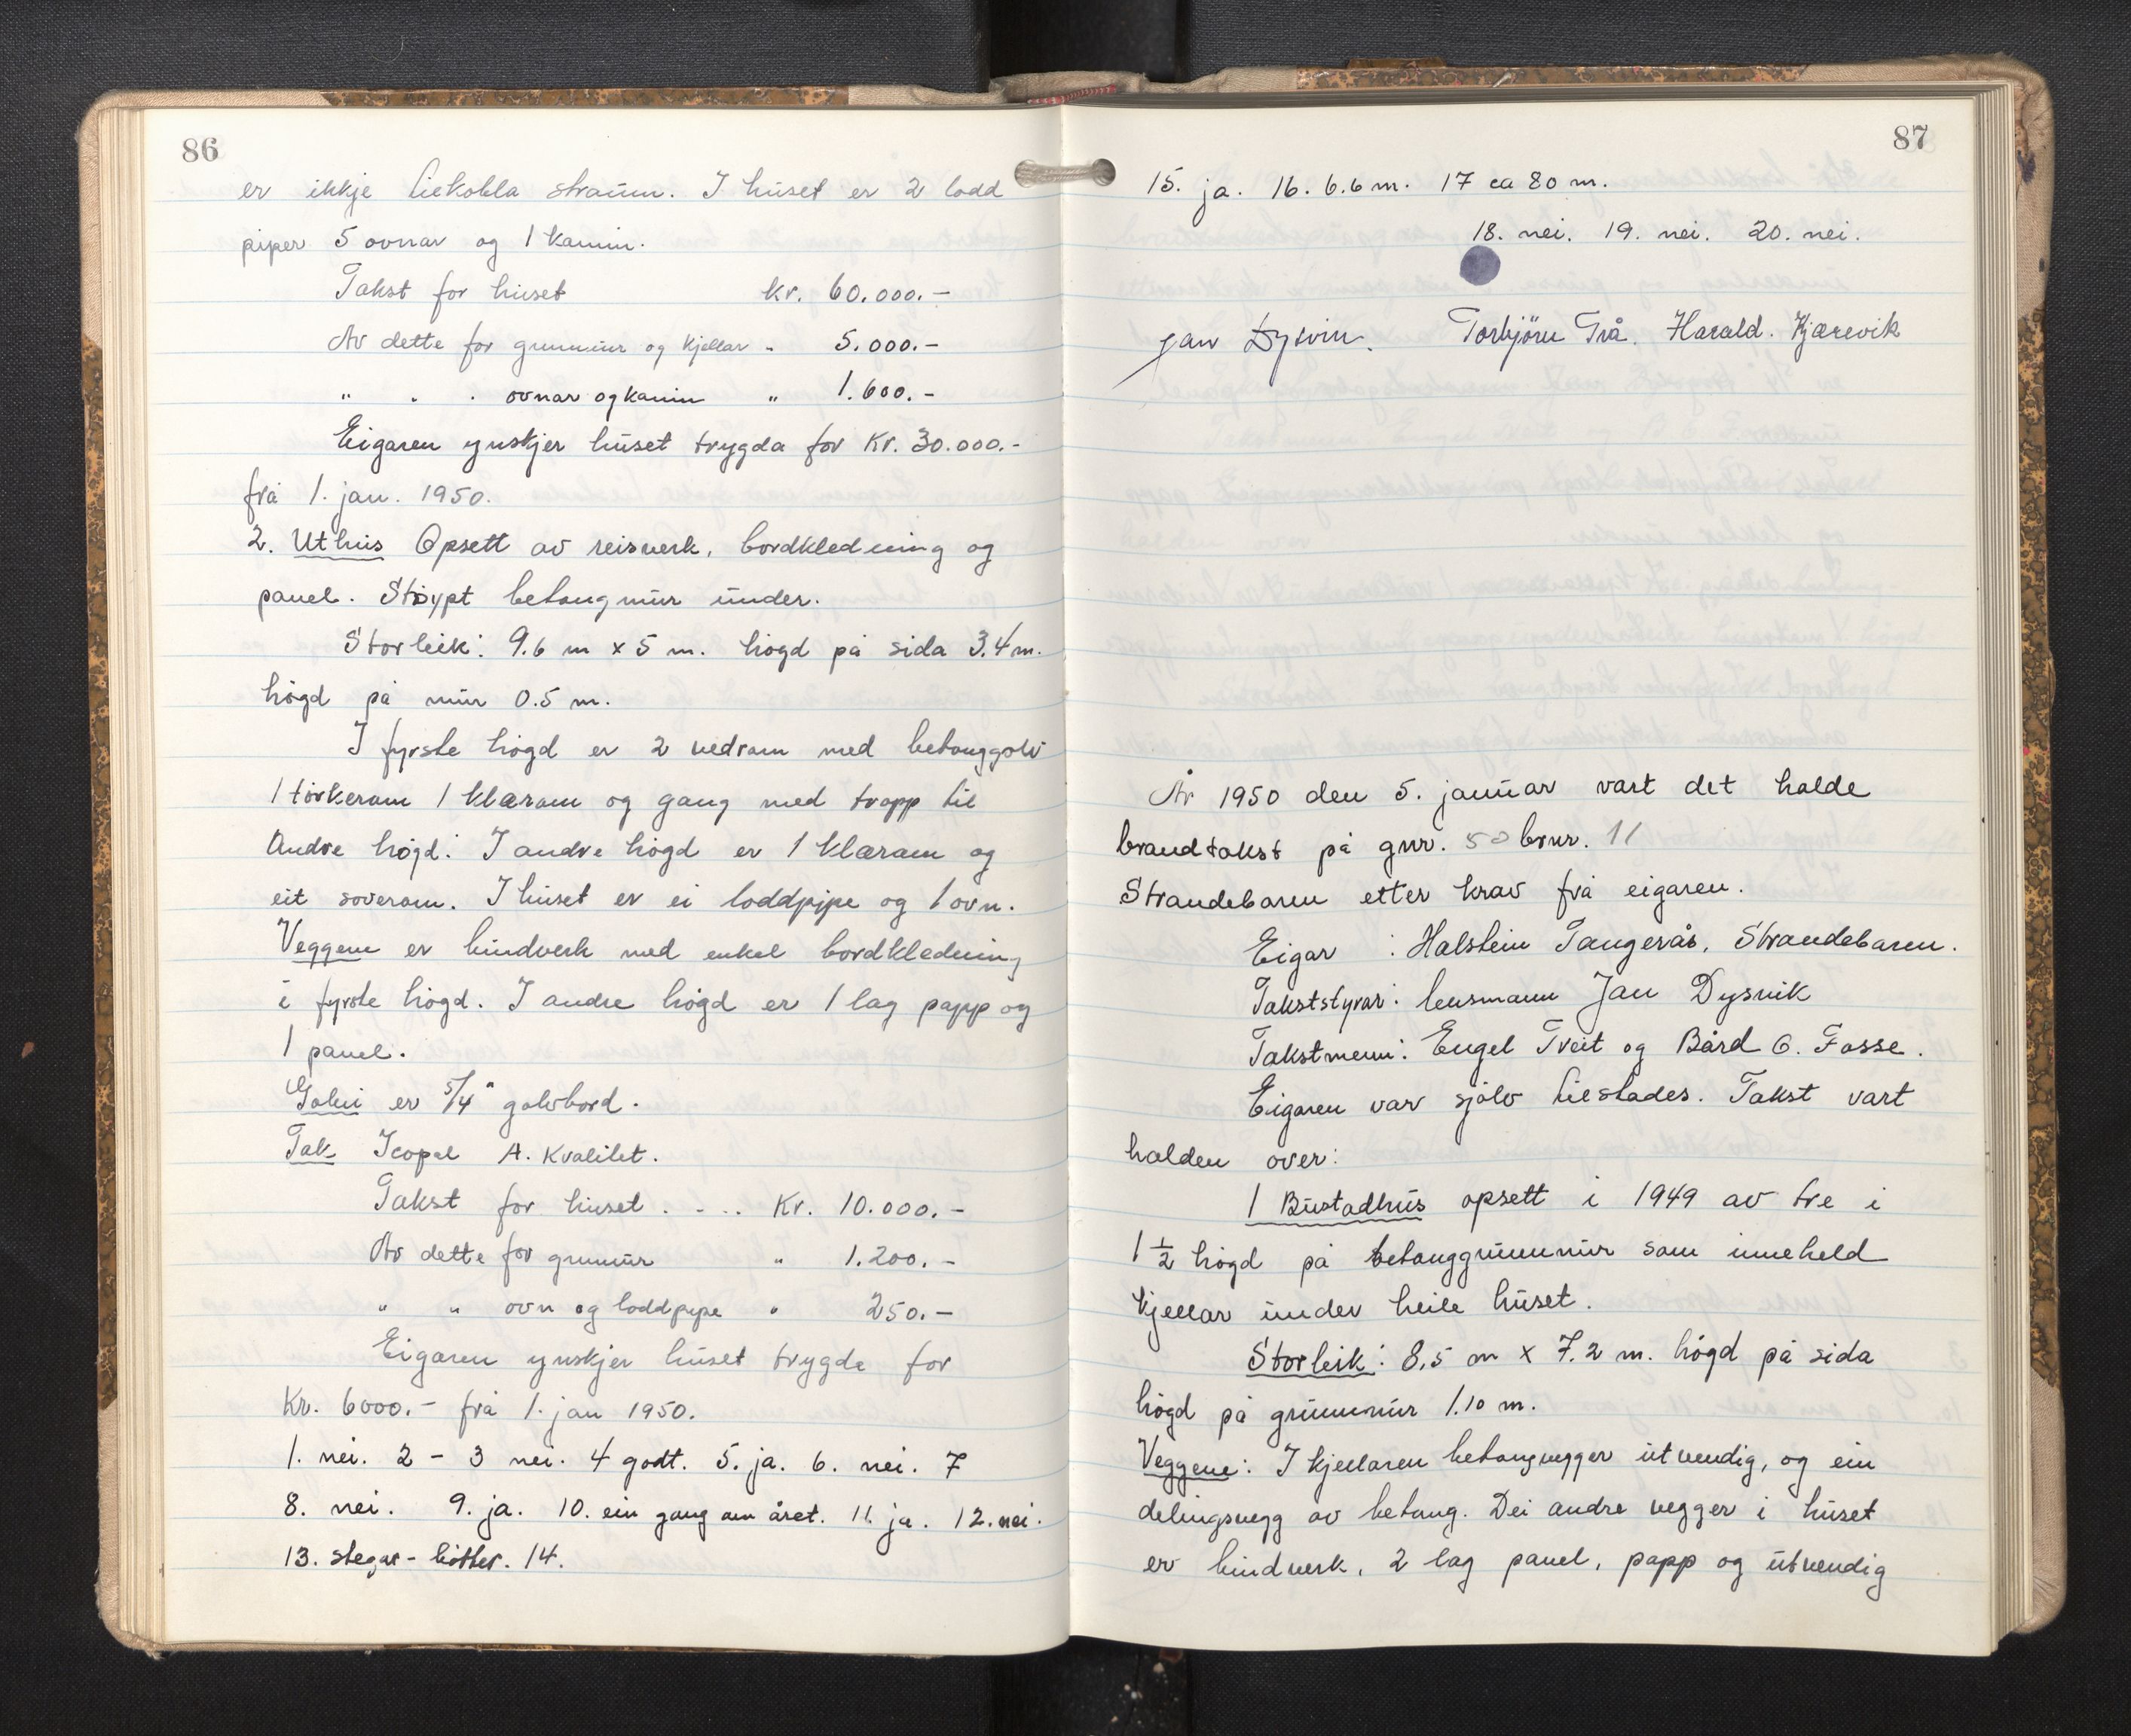 86
er ikkje tilkobla straum. I huset er 2 lodd
piper 5 ovnar og 1 kamin.
Takst for huset kr. 60.000.-
Av dette for grunnmur og kjellar " 5.000.-
" " " ovnar og kamin " 1.600.-
Eigaren ynskjer huset trygda for Kr. 30.000.-
frå 1. jan. 1950.
2. Uthus Opsett av reisverk, bordkledning og
panel. Støypt betongmur under.
Storleik: 9.6 m x 5 m. høgd på sida 3.4 m.
høgd på mur 0.5 m.
I fyrste høgd er 2 vedrom med betonggolv
1 tørkerom 1 klærom og gang med tropp til
Andre høgd. I andre høgd er 1 klærom og
eit soverom. I huset er ei loddpipe og 1 ovn.
Veggene er bindverk med enkel bordkledning
i fyrste høgd. I andre høgd er 1 lag papp og
1 panel.
Golvi er 5/4" golvbord.
Tak Icopal A. Kvalitet.
Takst for huset . - .. Kr. 10.000.-
Av dette for grunmur " 1.200.-
" " ovn og loddpipe " 250.-
Eigaren ynskjer huset trygda for
Kr. 6000.- frå 1. jan 1950.
1. nei. 2 - 3 nei. 4 godt. 5. ja. 6. nei. 7
8. nei. 9. ja. 10. ein gang om året. 11. ja. 12. nei.
13. stegar - bøtter. 14.
87
15. ja. 16. 6.6 m. 17 ca 80 m.
18. nei. 19. nei. 20. nei.
Jan Dysvik. Torbjörn Trå. Harald. Kjærevik
År 1950 den 5. januar vart det halde
brandtakst på gnr. 50 brnr. 11
Strandebarm etter krav frå eigaren.
Eigar : Halstein Tangerås, Strandebarm.
Takststyrar: lensmann Jan Dysvik
Takstmenn: Engel Tveit og Bård G. Fosse.
Eigaren var sjølv tilstades. Takst vart
halden over:
1 Bustadhus opsett i 1949 av tre i
1 1/2 høgd på betonggrunnmur som inneheld
kjellar under heile huset.
Storleik: 8,5 m x 7.2 m. høgd på sida
høgd på grunnmur 1.10 m.
Veggene: I kjellaren betongvegger utvendig, og ein
delingsvegg av betong. Dei andre vegger i huset
er bindverk, 2 lag panel, papp og utvendig